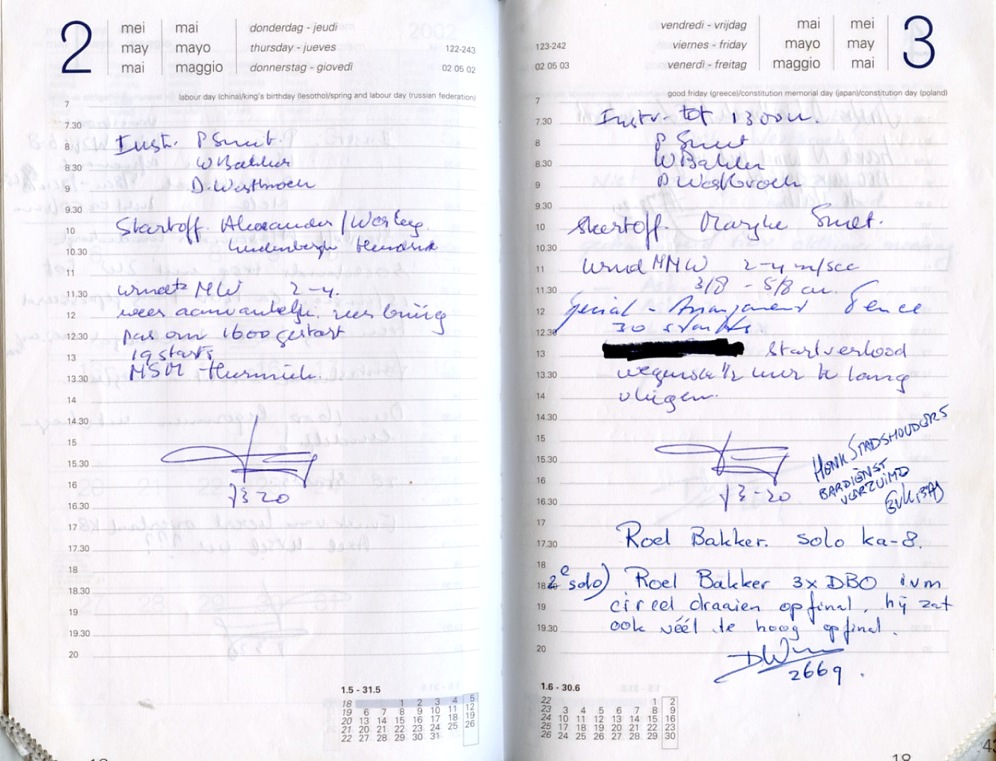 2
mei mai donderdag - jeudi
may mayo thursday - jueves 122-243
mai maggio donnerstag - giovedi 02 05 02
labour day (china)/king's birthday (lesotho)/spring and labour day (russian federation)
7
7.30
8 Instr. P Smit.
8.30 W Bakker
9 D. Westbroek
9.30
10 Startoff. Alexander /
10.30 Hendrik
11
11.30 MW 2-4.
12 weer
12.30 pas om 1600 gestart
13 19 starts
13.30 MSM
14
14.30
15
15.30
16
16.30
17
17.30
18
18.30
19
19.30
20
1.5 - 31.5
18 1 2 3 4 5
19 6 7 8 9 10 11 12
20 13 14 15 16 17 18 19
21 20 21 22 23 24 25 26
22 27 28 29 30 31
vendredi - vrijdag mai mei 3
123-242 viernes - friday mayo may
02 05 03 venerdi - freitag maggio mai
good friday (greece)/constitution memorial day (japan)/constitution day (poland)
7
7.30 Instr. tot 1300 u.
8 P Smit
8.30 W Bakker
9 D Westbroek
9.30
10 Startoff. Marijke Smit.
10.30
11 Wind NNW 2-4 m/sec
11.30 3/8 - 5/8 cu.
12
12.30 30 starts
13 Startverbod
13.30 wegens 1/2 uur te lang
14 vliegen.
14.30
15 HENK STADSHOUDERS
15.30 BARDIENST
16 VERZUIMD
16.30
17
17.30 Roel Bakker. solo ka-8.
18
18.30 2e solo) Roel Bakker 3x DBO ivm
19 cirkel draaien op final, hij zat
19.30 ook véél te hoog op final.
20
2669.
1.6 - 30.6
22 1 2
23 3 4 5 6 7 8 9
24 10 11 12 13 14 15 16
25 17 18 19 20 21 22 23
26 24 25 26 27 28 29 30